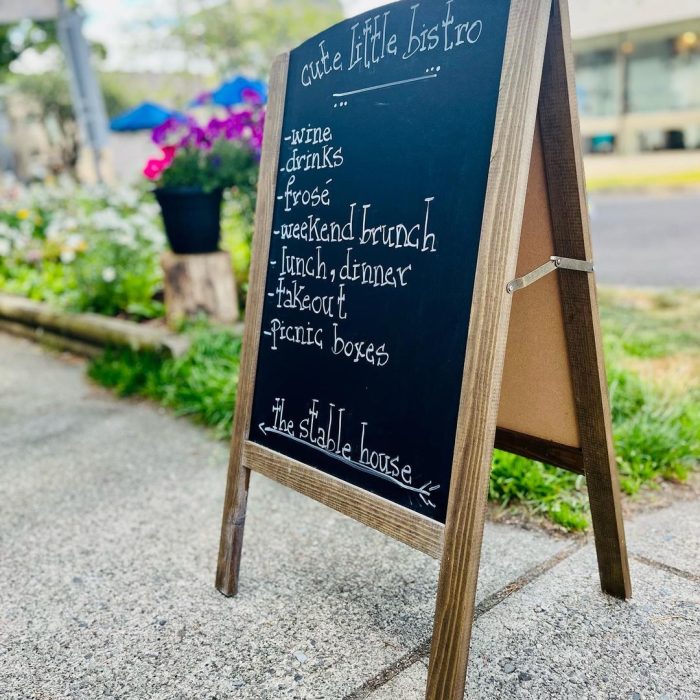 cute little bistro
-wine
-drinks
-frosé
-weekend brunch
-lunch, dinner
-takeout
-picnic boxes
the stable house